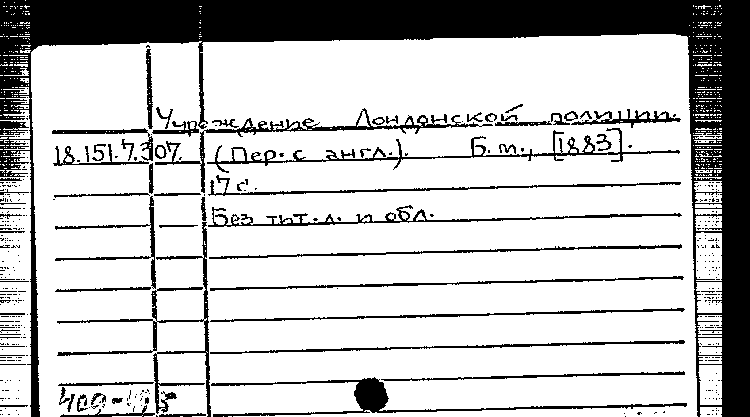 Учреждение Лондонской полиции.
18.151.7.307. (Пер. с англ.). Б.м., [1883].
17 с.
Без тит. л. и обл.